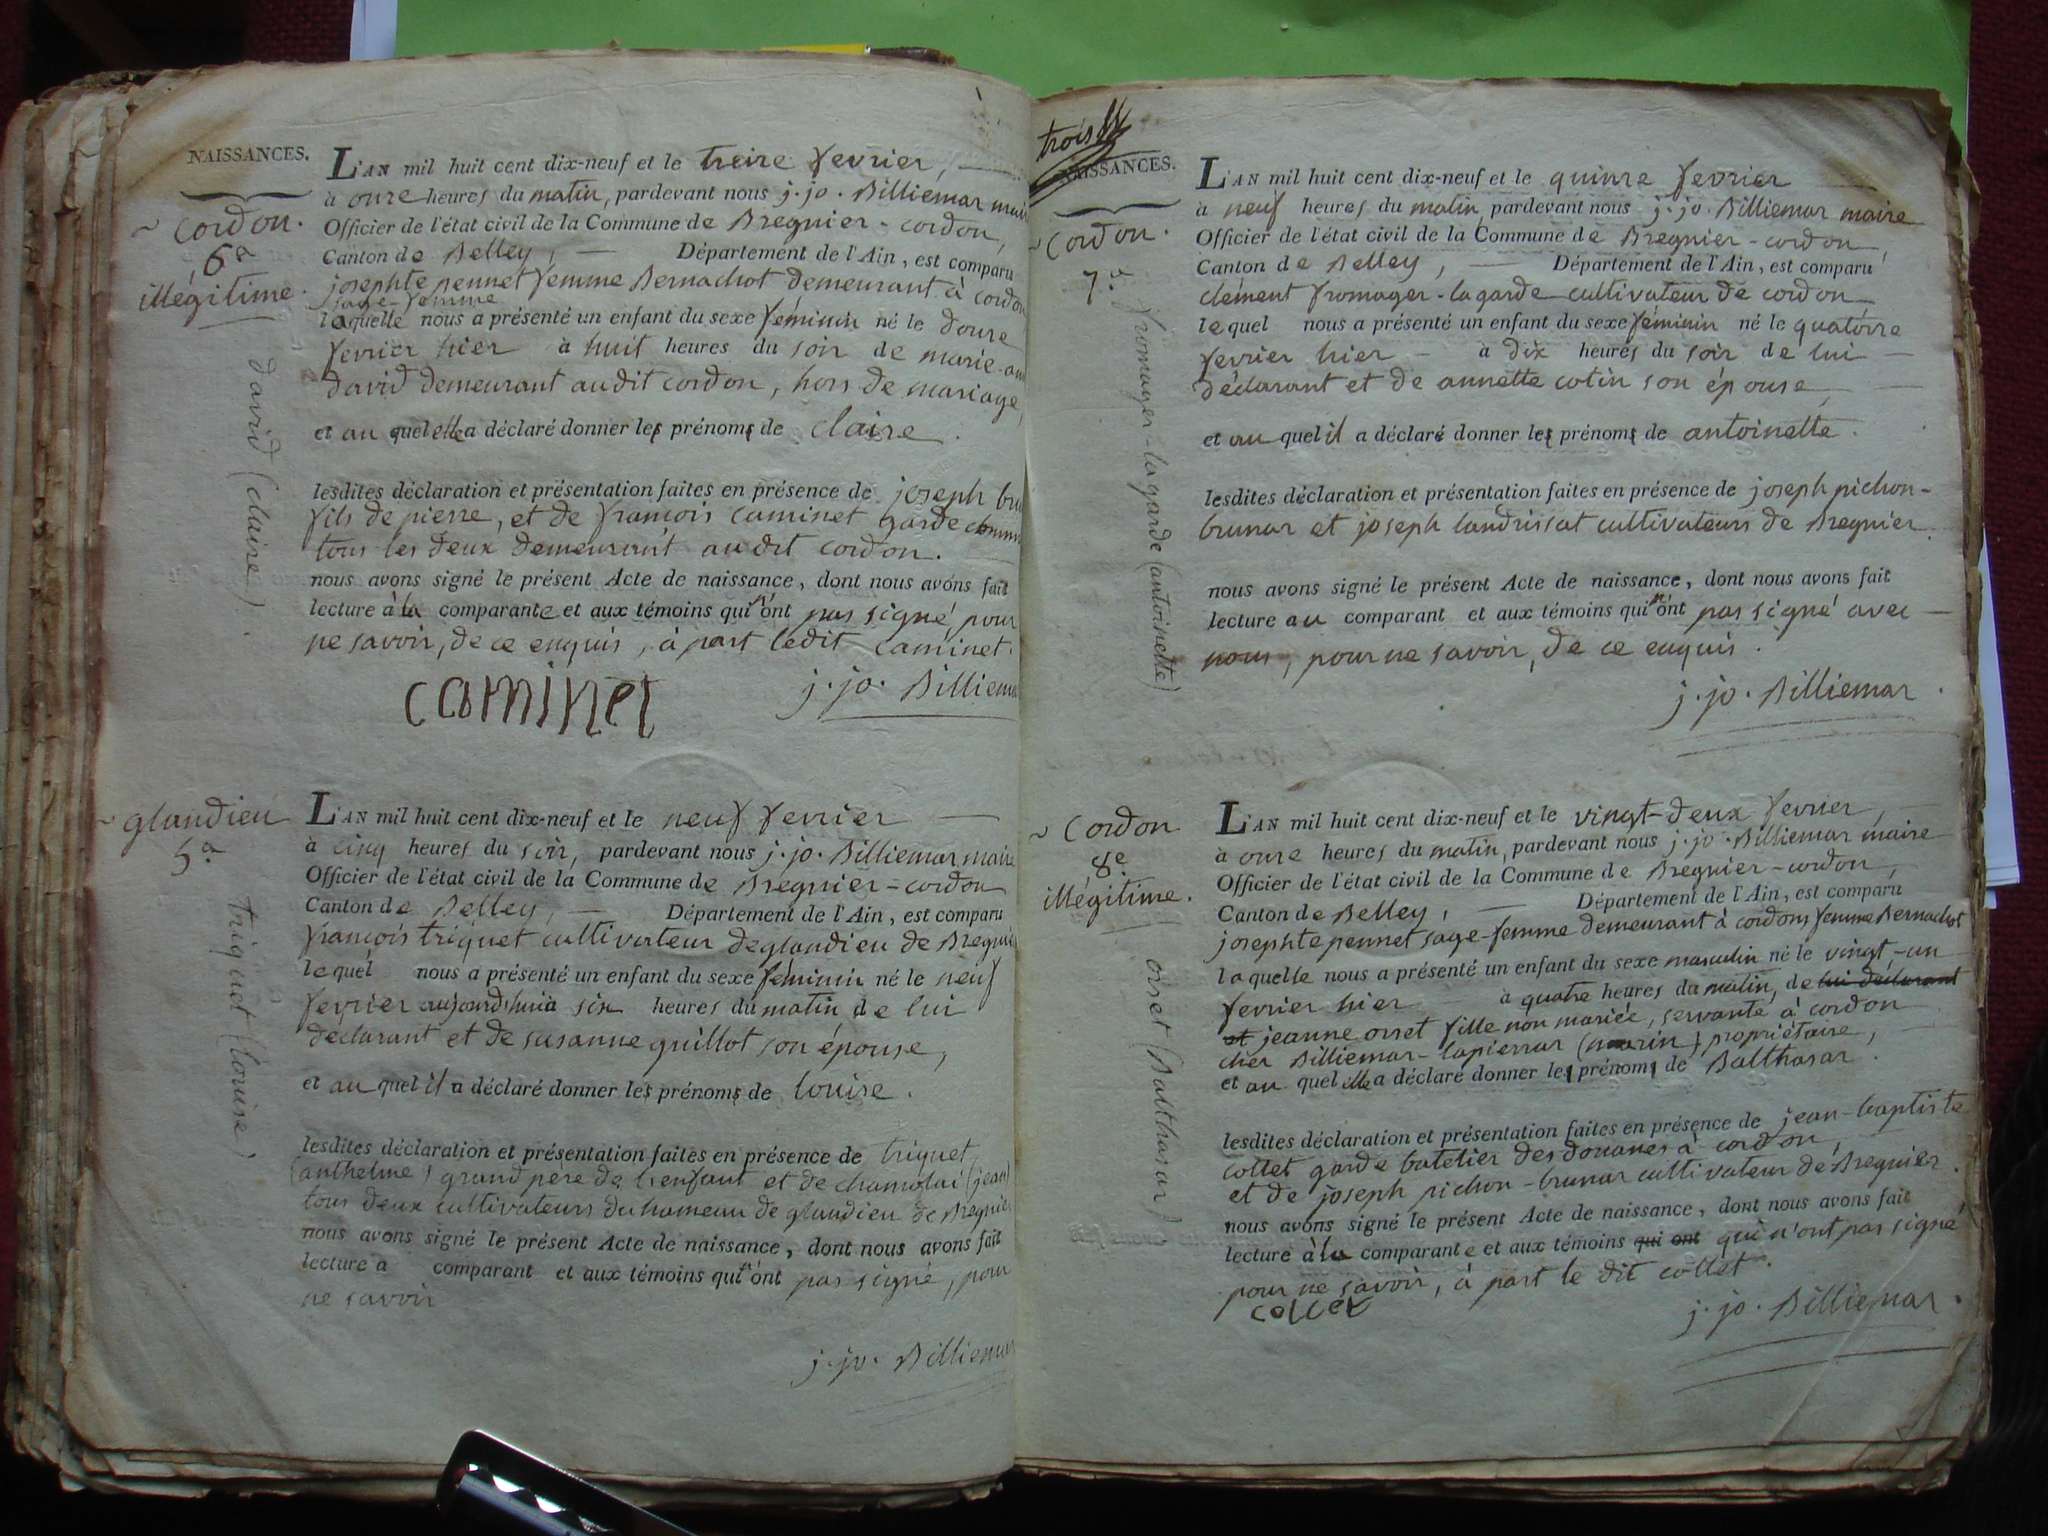 NAISSANCES.
cordon.
6e
illégitime.
david (claire)
L'AN mil huit cent dix-neuf et le treize fevrier,
à onze heures du matin, pardevant nous j. jo. Billiemaz
Officier de l'état civil de la Commune de Bregnier-cordon,
Canton de Belley, Département de l'Ain, est comparu
josephte pennet femme Bernachot demeurant à cordon
sage-femme
laquelle nous a présenté un enfant du sexe féminin né le douze
fevrier hier à huit heures du soir de marie-
david demeurant audit cordon, hors de mariage,
et au quel elle a déclaré donner les prénoms de claire.
lesdites déclaration et présentation faites en présence de joseph
fils de pierre, et de françois caminet garde
tous les deux demeurant audit cordon.
nous avons signé le présent Acte de naissance, dont nous avons fait
lecture à la comparante et aux témoins qui n'ont pas signé, pour
ne savoir, de ce enquis, à part ledit caminet.
caminet
j. jo. Billiemaz
glandieu
5e
triquet (louise)
L'AN mil huit cent dix-neuf et le neuf fevrier
à cinq heures du soir, pardevant nous j. jo. Billiemaz maire
Officier de l'état civil de la Commune de Bregnier-cordon
Canton de Belley, Département de l'Ain, est comparu
françois triquet cultivateur de glandieu de Bregnier
lequel nous a présenté un enfant du sexe féminin né le neuf
fevrier aujourd'hui à six heures du matin de lui
declarant et de susanne guillot son épouse,
et au quel il a déclaré donner les prénoms de louise.
lesdites déclaration et présentation faites en présence de triquet
(anthelme) grand père de l'enfant et de chamolai (jean)
tous deux cultivateurs du hameau de glandieu de Bregnier
nous avons signé le présent Acte de naissance, dont nous avons fait
lecture a comparant et aux témoins qui n'ont pas signé, pour
ne savoir
j. jo. Billiemaz
trois
NAISSANCES.
cordon.
7e
fromager-lagarde (antoinette)
L'AN mil huit cent dix-neuf et le quinze fevrier
à neuf heures du matin, pardevant nous j. jo. Billiemaz maire
Officier de l'état civil de la Commune de Bregnier-cordon
Canton de Belley, Département de l'Ain, est comparu
clément fromager-lagarde cultivateur de cordon
lequel nous a présenté un enfant du sexe féminin né le quatorze
fevrier hier à dix heures du soir de lui
déclarant et de annette cotin son épouse,
et au quel il a déclaré donner les prénoms de antoinette.
lesdites déclaration et présentation faites en présence de joseph pichon-
brunaz et joseph landrissat cultivateurs de Bregnier.
nous avons signé le présent Acte de naissance, dont nous avons fait
lecture au comparant et aux témoins qui n'ont pas signé avec
nous, pour ne savoir, de ce enquis.
j. jo. Billiemaz
Cordon
8e
illégitime.
orset (Balthasar)
L'AN mil huit cent dix-neuf et le vingt-deux fevrier,
à onze heures du matin, pardevant nous j. jo. Billiemaz maire
Officier de l'état civil de la Commune de Bregnier-cordon,
Canton de Belley, Département de l'Ain, est comparu
josephte pennet sage-femme demeurant à cordon, femme Bernachot
laquelle nous a présenté un enfant du sexe masculin né le vingt-un
fevrier hier à quatre heures du matin, de lui déclarant
et jeanne orset fille non mariée, servante à cordon
chez Billiemaz-lapierraz (marin) propriétaire,
et au quel elle a déclaré donner les prénoms de Balthasar.
lesdites déclaration et présentation faites en présence de jean-baptiste
collet garde batelier des douanes à cordon,
et de joseph pichon-brunaz cultivateur de Bregnier.
nous avons signé le présent Acte de naissance, dont nous avons fait
lecture à la comparante et aux témoins qui ont qui n'ont pas signé
pour ne savoir, à part le dit collet.
collet
j. jo. Billiemaz.